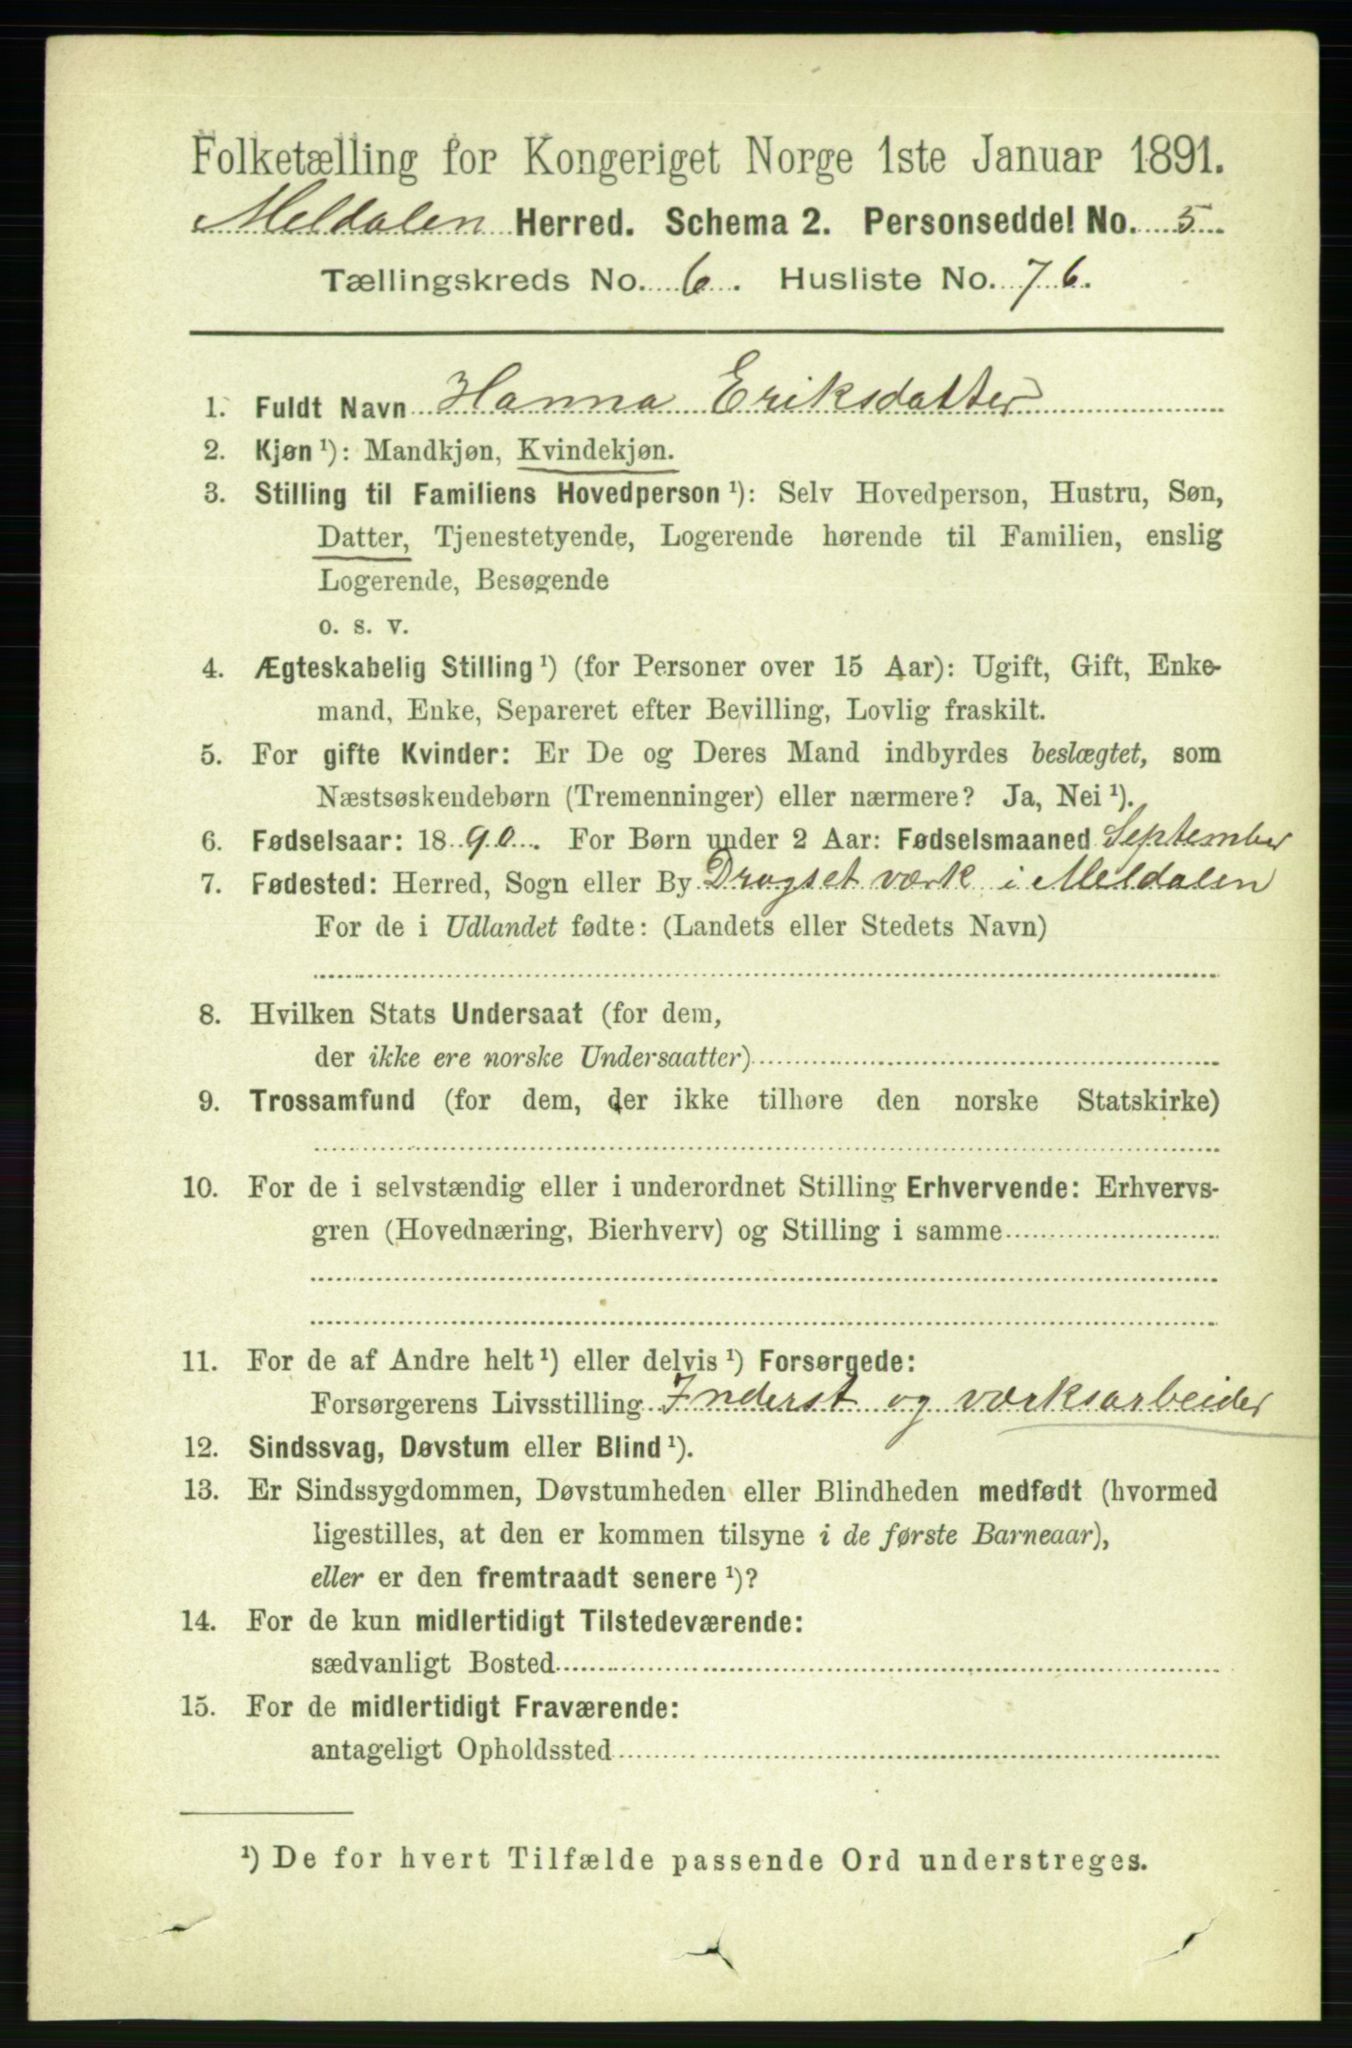 Folketælling for Kongeriget Norge 1ste Januar 1891.
Meldalen Herred. Schema 2. Personseddel No. 5
Tællingskreds No. 6. Husliste No. 76.
1. Fuldt Navn Hanna Eriksdatter
2. Kjøn ¹): Mandkjøn, Kvindekjøn.
3. Stilling til Familiens Hovedperson ¹): Selv Hovedperson, Hustru, Søn,
Datter, Tjenestetyende, Logerende hørende til Familien, enslig
Logerende, Besøgende
o. s. v.
4. Ægteskabelig Stilling ¹) (for Personer over 15 Aar): Ugift, Gift, Enke-
mand, Enke, Separeret efter Bevilling, Lovlig fraskilt.
5. For gifte Kvinder: Er De og Deres Mand indbyrdes beslægtet, som
Næstsøskendebørn (Tremenninger) eller nærmere? Ja, Nei ¹).
6. Fødselsaar: 1890. For Børn under 2 Aar: Fødselsmaaned September
7. Fødested: Herred, Sogn eller By Dragset værk i Meldalen
For de i Udlandet fødte: (Landets eller Stedets Navn)
8. Hvilken Stats Undersaat (for dem,
der ikke ere norske Undersaatter)
9. Trossamfund (for dem, der ikke tilhøre den norske Statskirke)
10. For de i selvstændig eller i underordnet Stilling Erhvervende: Erhvervs-
gren (Hovednæring, Bierhverv) og Stilling i samme
11. For de af Andre helt ¹) eller delvis ¹) Forsørgede:
Forsørgerens Livsstilling Inderst og værksarbeider
12. Sindssvag, Døvstum eller Blind ¹).
13. Er Sindssygdommen, Døvstumheden eller Blindheden medfødt (hvormed
ligestilles, at den er kommen tilsyne i de første Barneaar),
eller er den fremtraadt senere ¹)?
14. For de kun midlertidigt Tilstedeværende:
sædvanligt Bosted
15. For de midlertidigt Fraværende:
antageligt Opholdssted
¹) De for hvert Tilfælde passende Ord understreges.